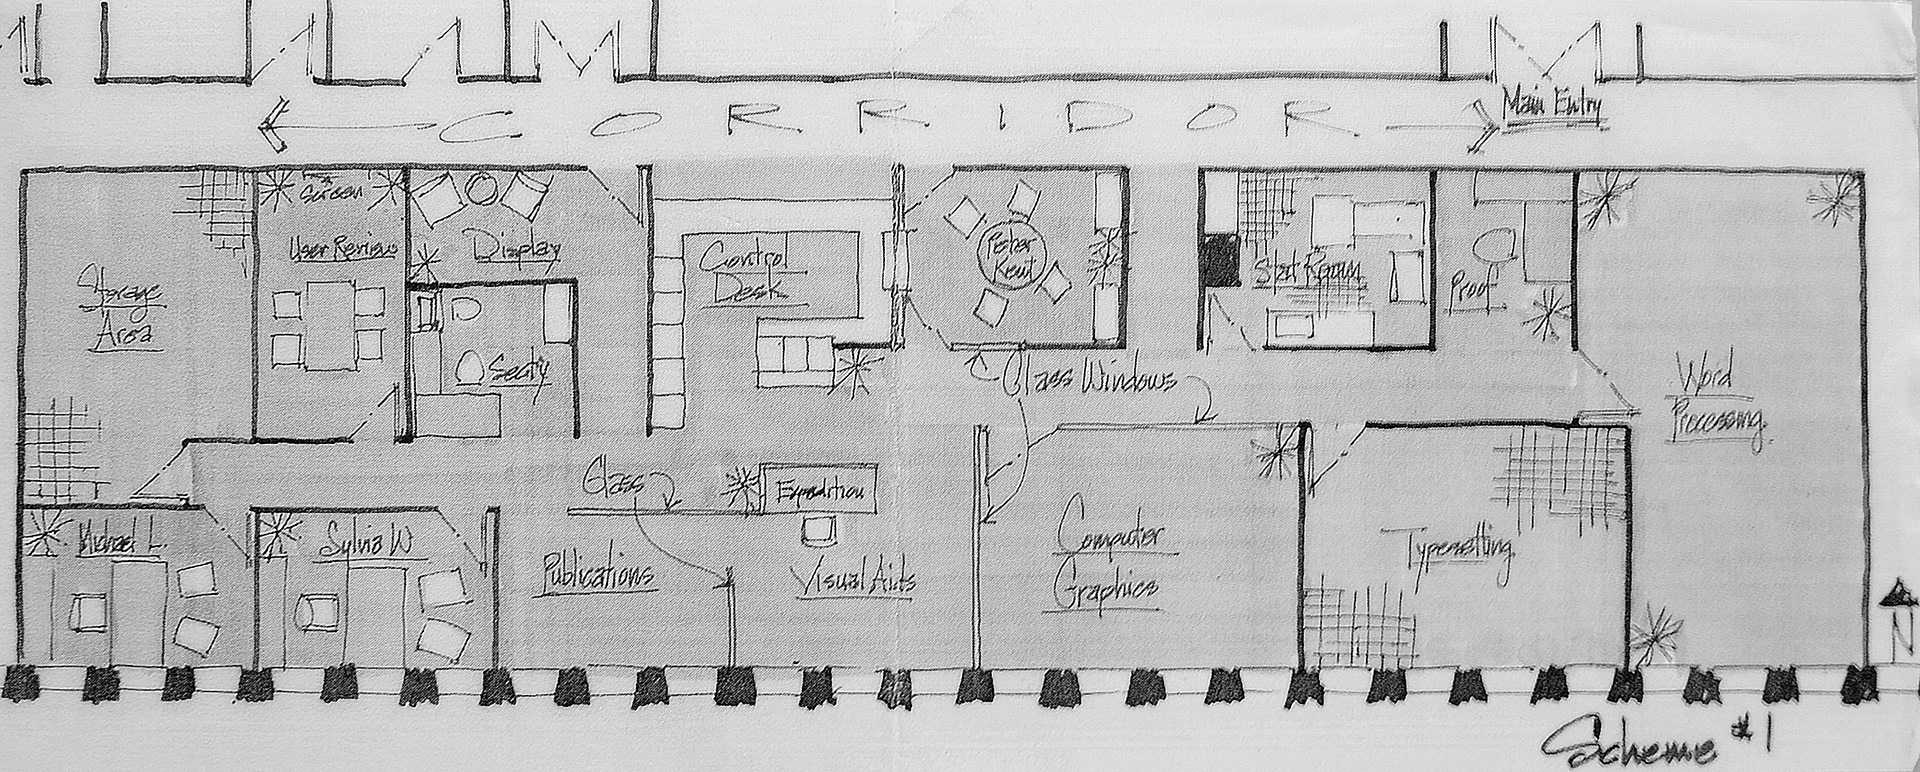 CORRIDOR
Main Entry
Screen
User Review
Display
Storage
Area
Control
Desk
Peter
Kent
Stat Room
Proof
Secty
Glass Windows
Word
Processing
Glass
Expedition
Michael L.
Sylvia W
Publications
Visual Aids
Computer
Graphics
Typesetting
N
Scheme #1